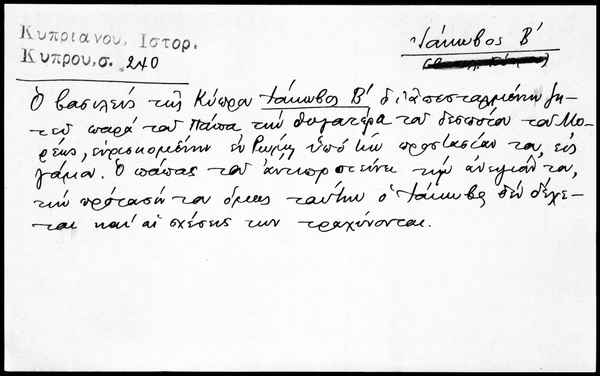 Κυπριανου, Ιστορ.
Κυπρου, σ. 240
Ἰάκωβος Β'
Ὁ βασιλεύς τῆς Κύπρου Ἰάκωβος Β' δι' ἀπεσταλμένων ζη-
τεῖ παρά τοῦ Πάπα τήν θυγατέρα τοῦ δεσπότου τοῦ Μο-
ρέως, εὑρισκομένην ἐν Ρώμῃ ὑπό τήν προστασίαν του, εἰς
γάμον. Ὁ πάπας τοῦ ἀντιπροτείνει τήν ἀνεψιάν του,
τήν πρότασίν του ὅμως ταύτην ὁ Ἰάκωβος δέν δέχε-
ται καί αἱ σχέσεις των τραχύνονται.